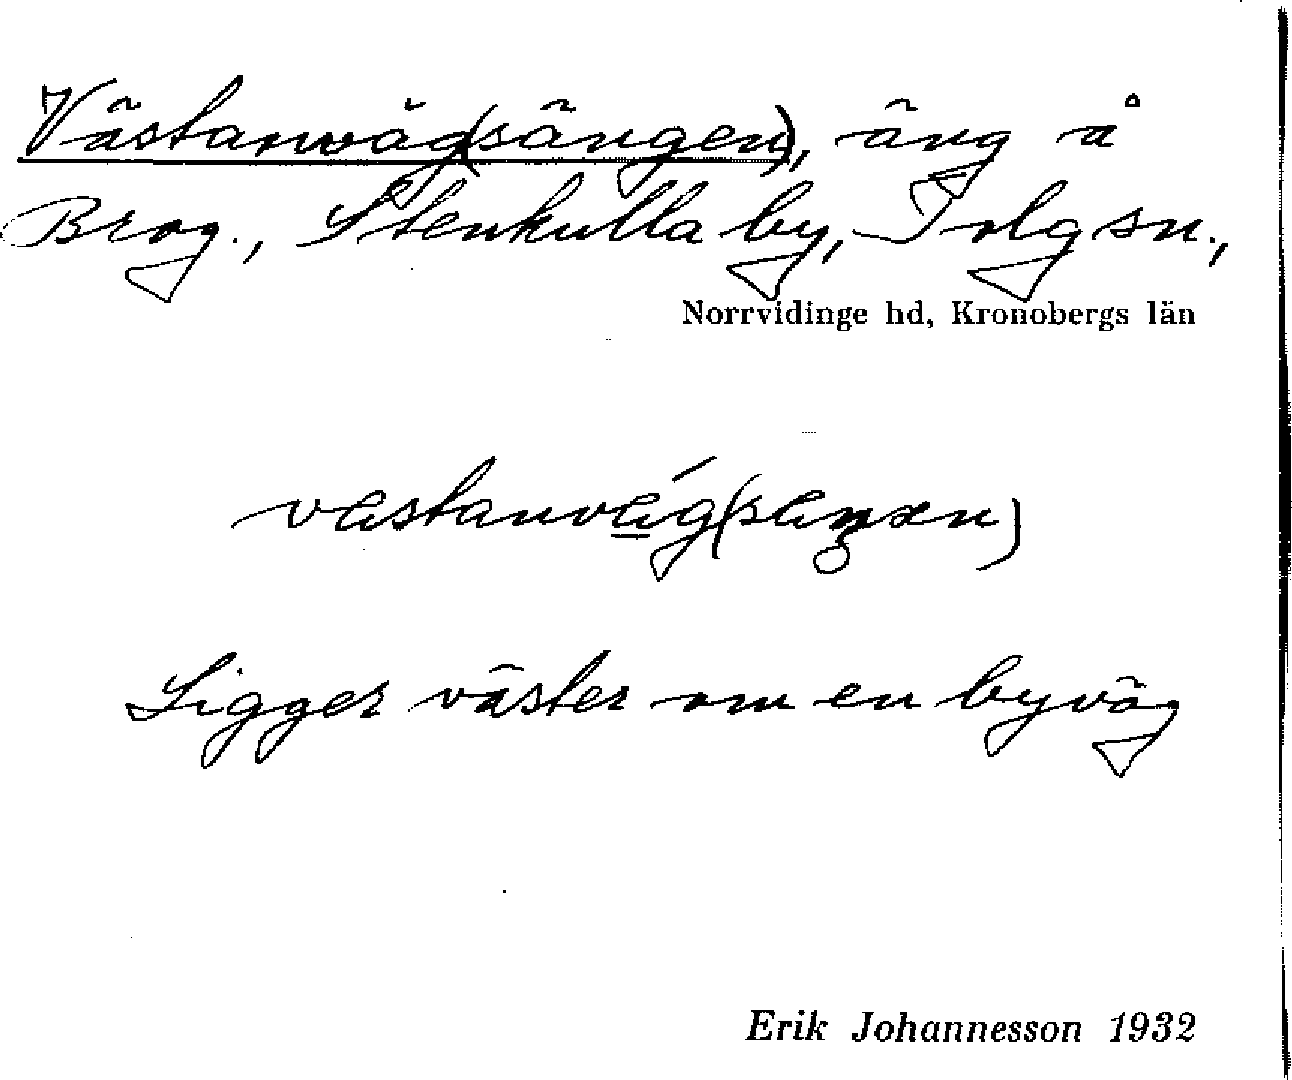 Västanväg(sängen), äng å
Brog., Stenkulla by, Tolg sn.,
Norrvidinge hd, Kronobergs län
västanvä́g(säŋən)
Ligger väster om en byväg
Erik Johannesson 1932